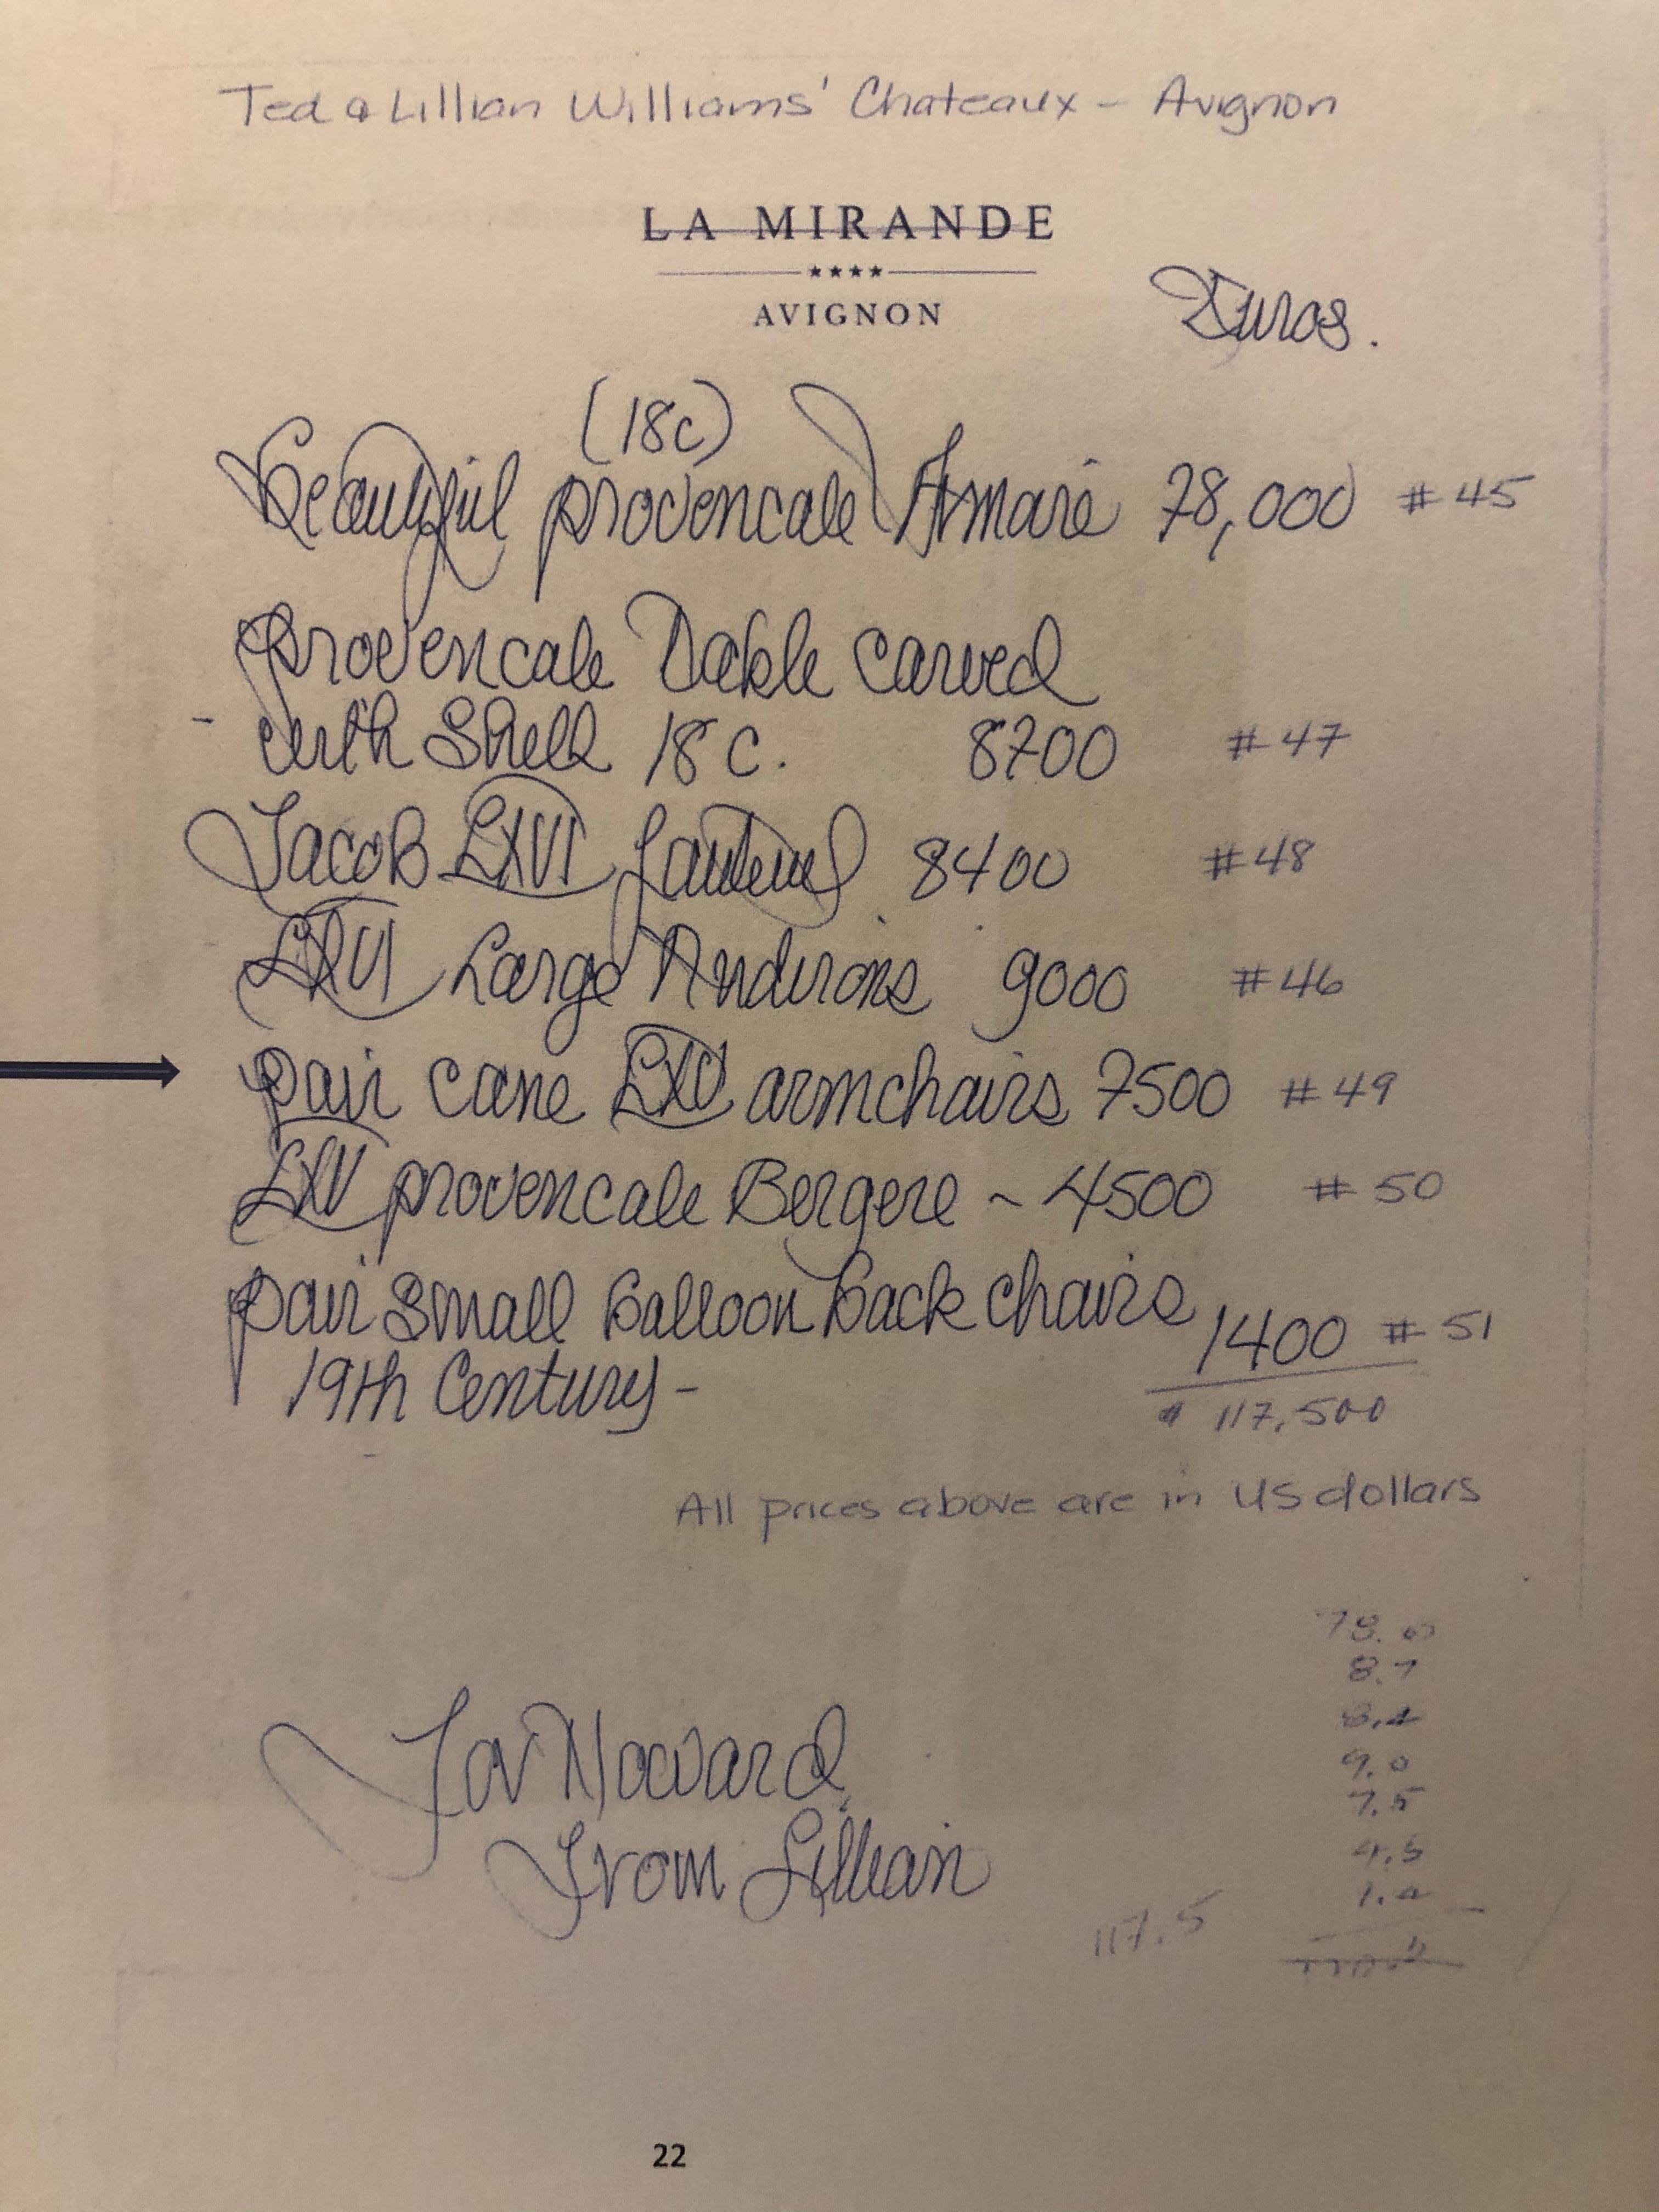 Ted & Lillian Williams' Chateaux - Avignon
LA MIRANDE
★★★★
AVIGNON
Euros.
(18c)
beautiful provencale Armare 78,000 # 45
provencale Table carved
- with Shell 18 C. 8700 # 47
Jacob LXVI fauteuil 8400 # 48
LXVI Large Andirons 9000 # 46
pair cane LXV armchairs 7500 # 49
LXV provencale Bergere ~ 4500 # 50
pair small balloon back chairs
1400 # 51
19th Century -
$ 117,500
All prices above are in US dollars
78.0
8.7
8.4
9.0
7.5
4.5
1.4
For Howard
From Lillian
117.5
22